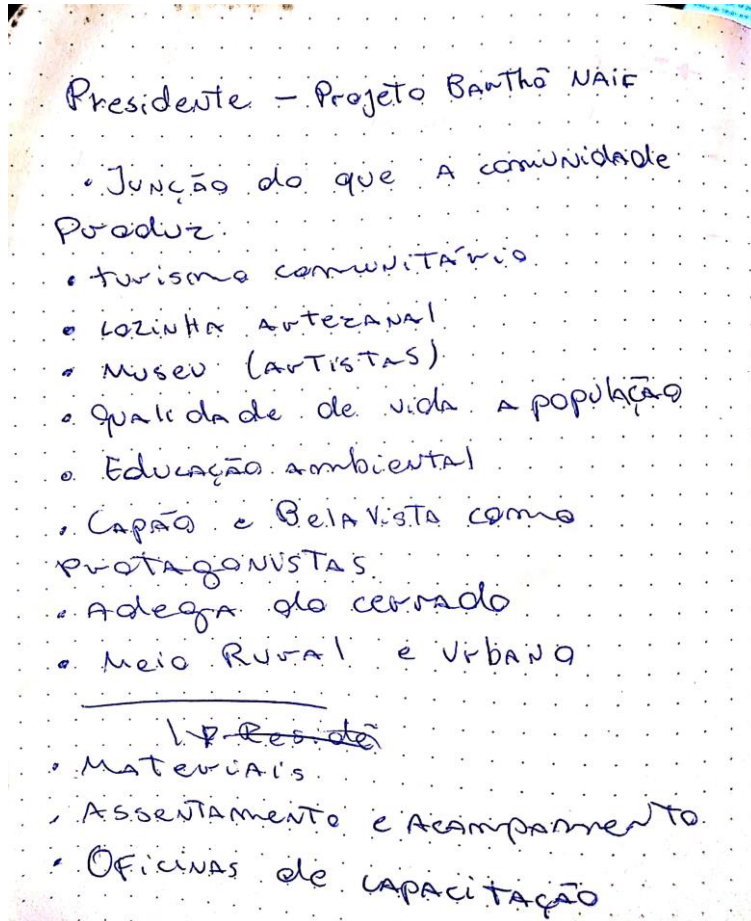 Presidente - Projeto Banthô NAiF
• Junção do que A comunidade
Produz.
• turismo comunitário
• cozinha Artezanal
• Museu (Artistas)
• Qualidade de vida A população
• Educação Ambiental
• Capão e Bela Vista como
protagonistas.
• Adega do cerrado
• Meio Rural e Urbano
• Materiais.
• Assentamento e Acampamento
• Oficinas de capacitação